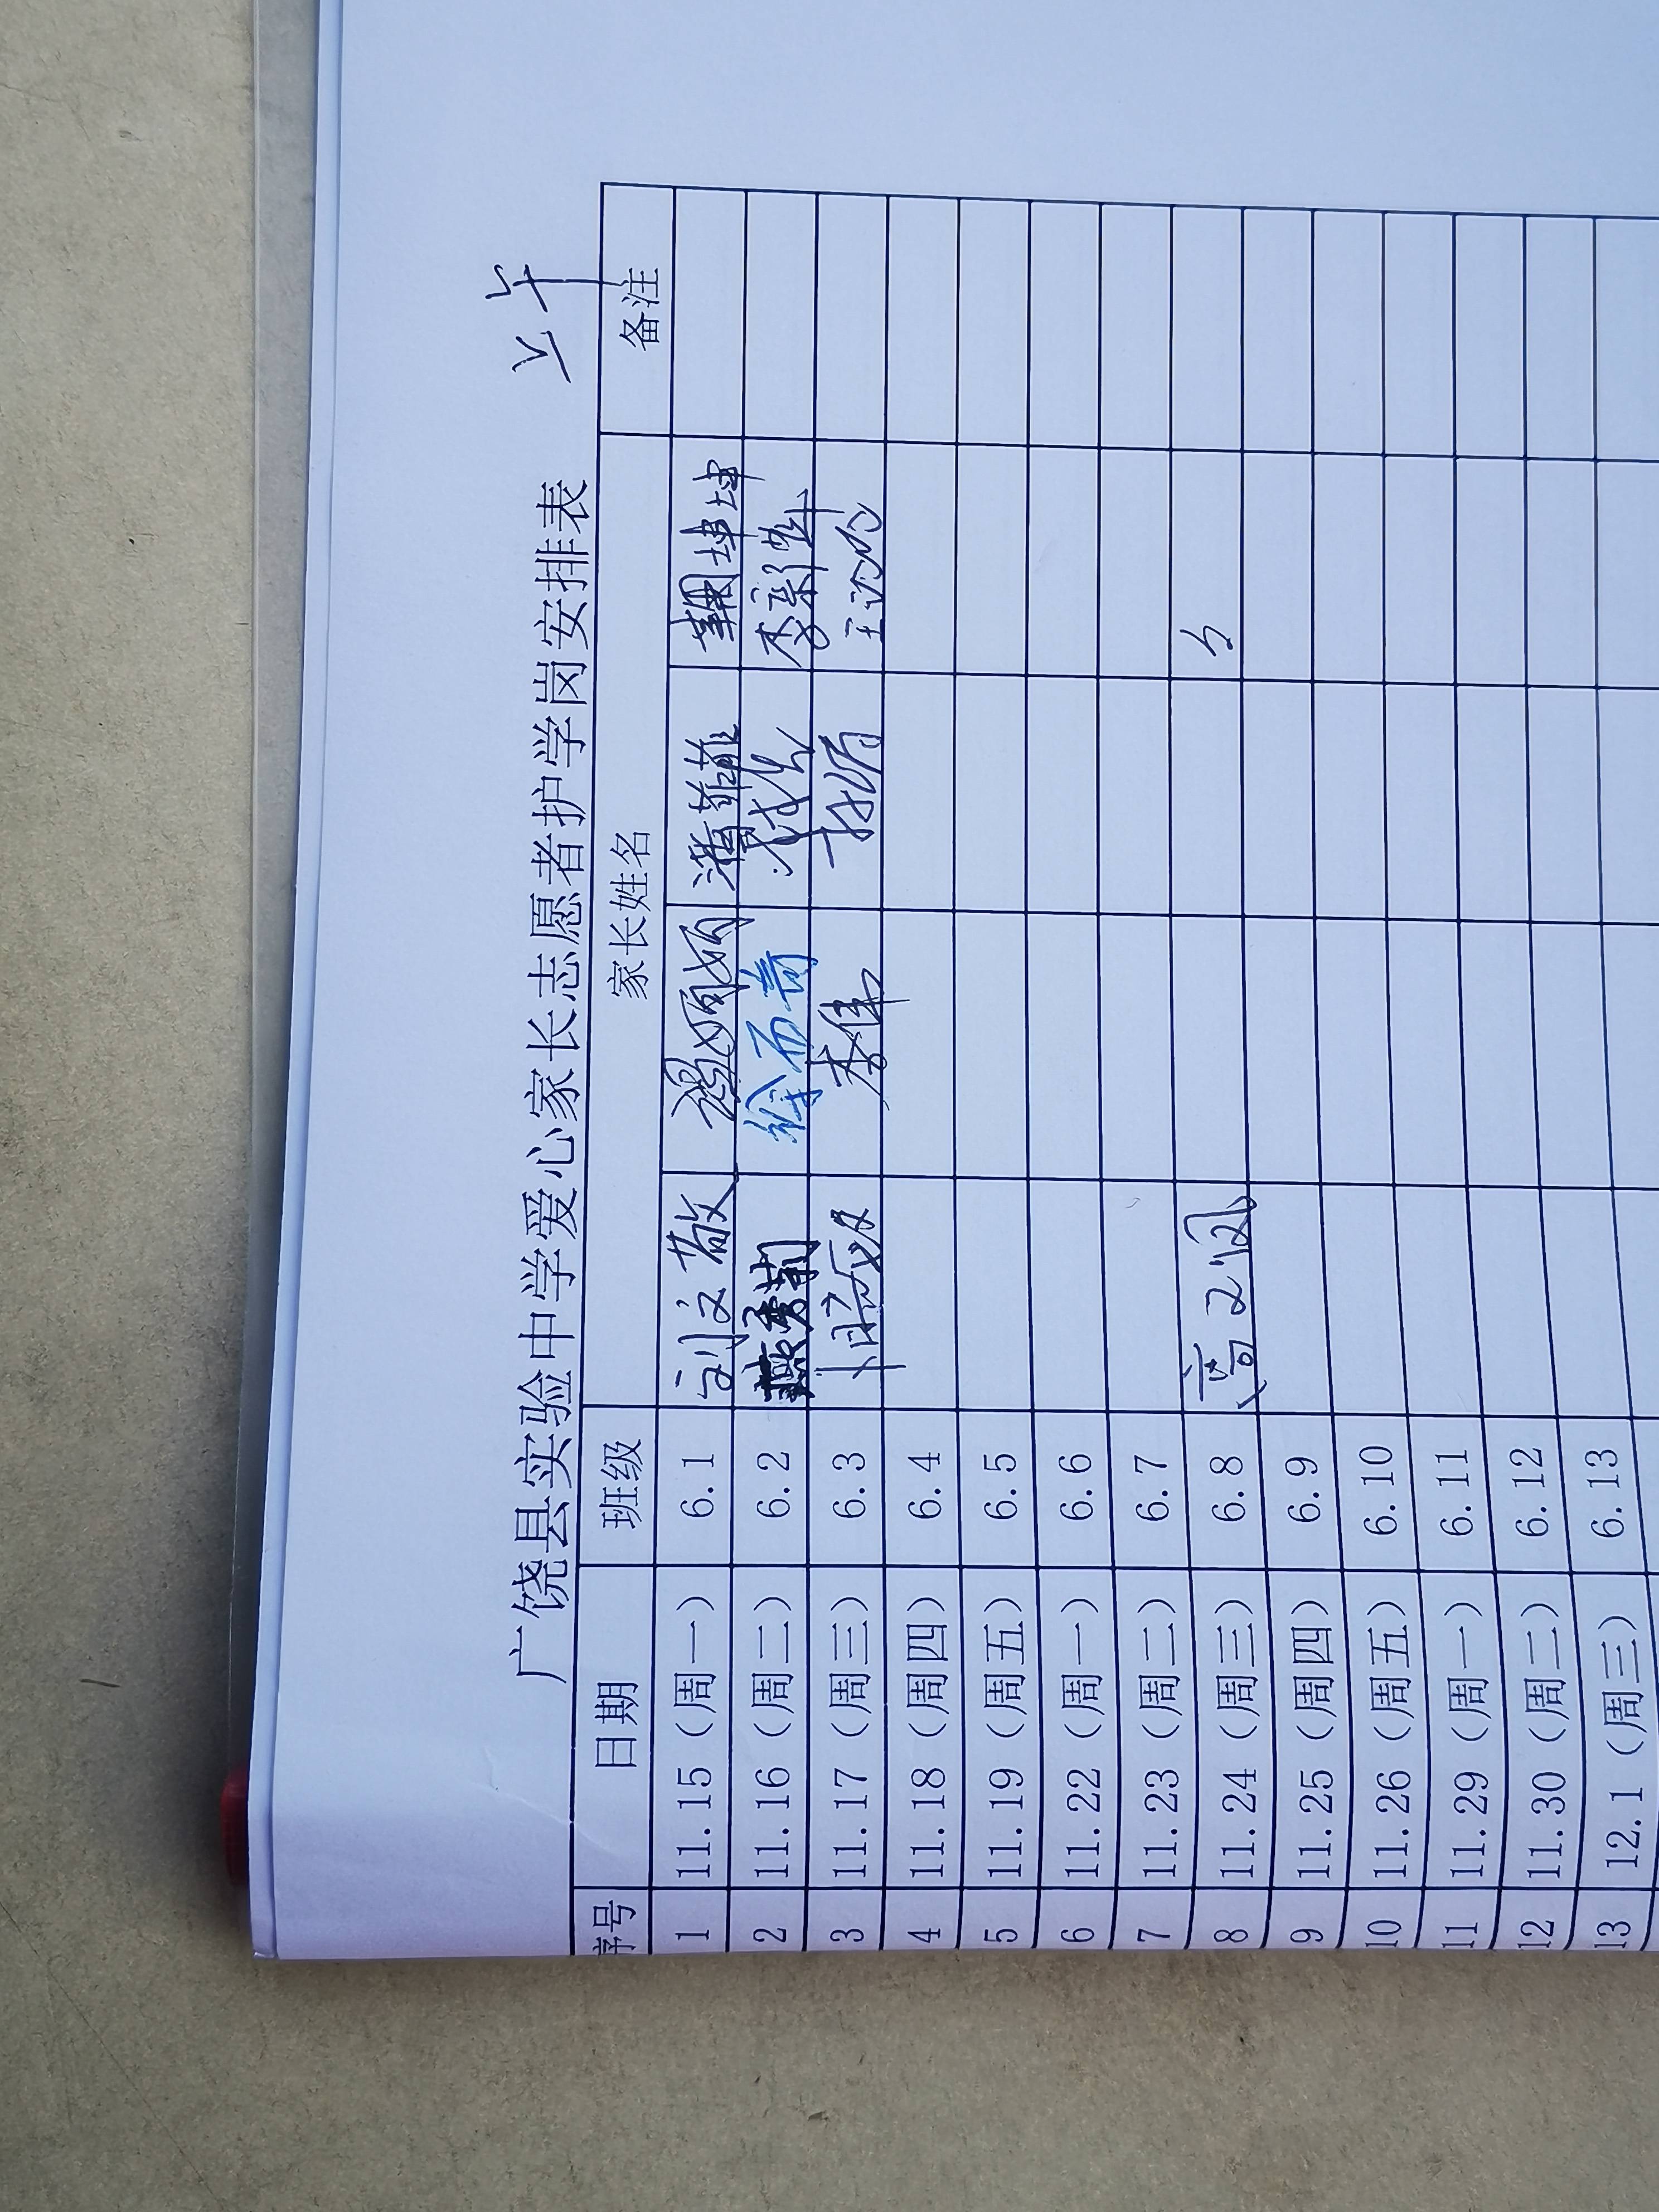 上午
广饶县实验中学爱心家长志愿者护学岗安排表
序号 日期 班级 家长姓名 备注
1 11.15（周一） 6.1 刘文敬 潘菲菲 坤坤
2 11.16（周二） 6.2 燕秀荆 徐而荷 李新华
3 11.17（周三） 6.3 李伟
4 11.18（周四） 6.4
5 11.19（周五） 6.5
6 11.22（周一） 6.6
7 11.23（周二） 6.7
8 11.24（周三） 6.8
9 11.25（周四） 6.9
10 11.26（周五） 6.10
11 11.29（周一） 6.11
12 11.30（周二） 6.12
13 12.1（周三） 6.13